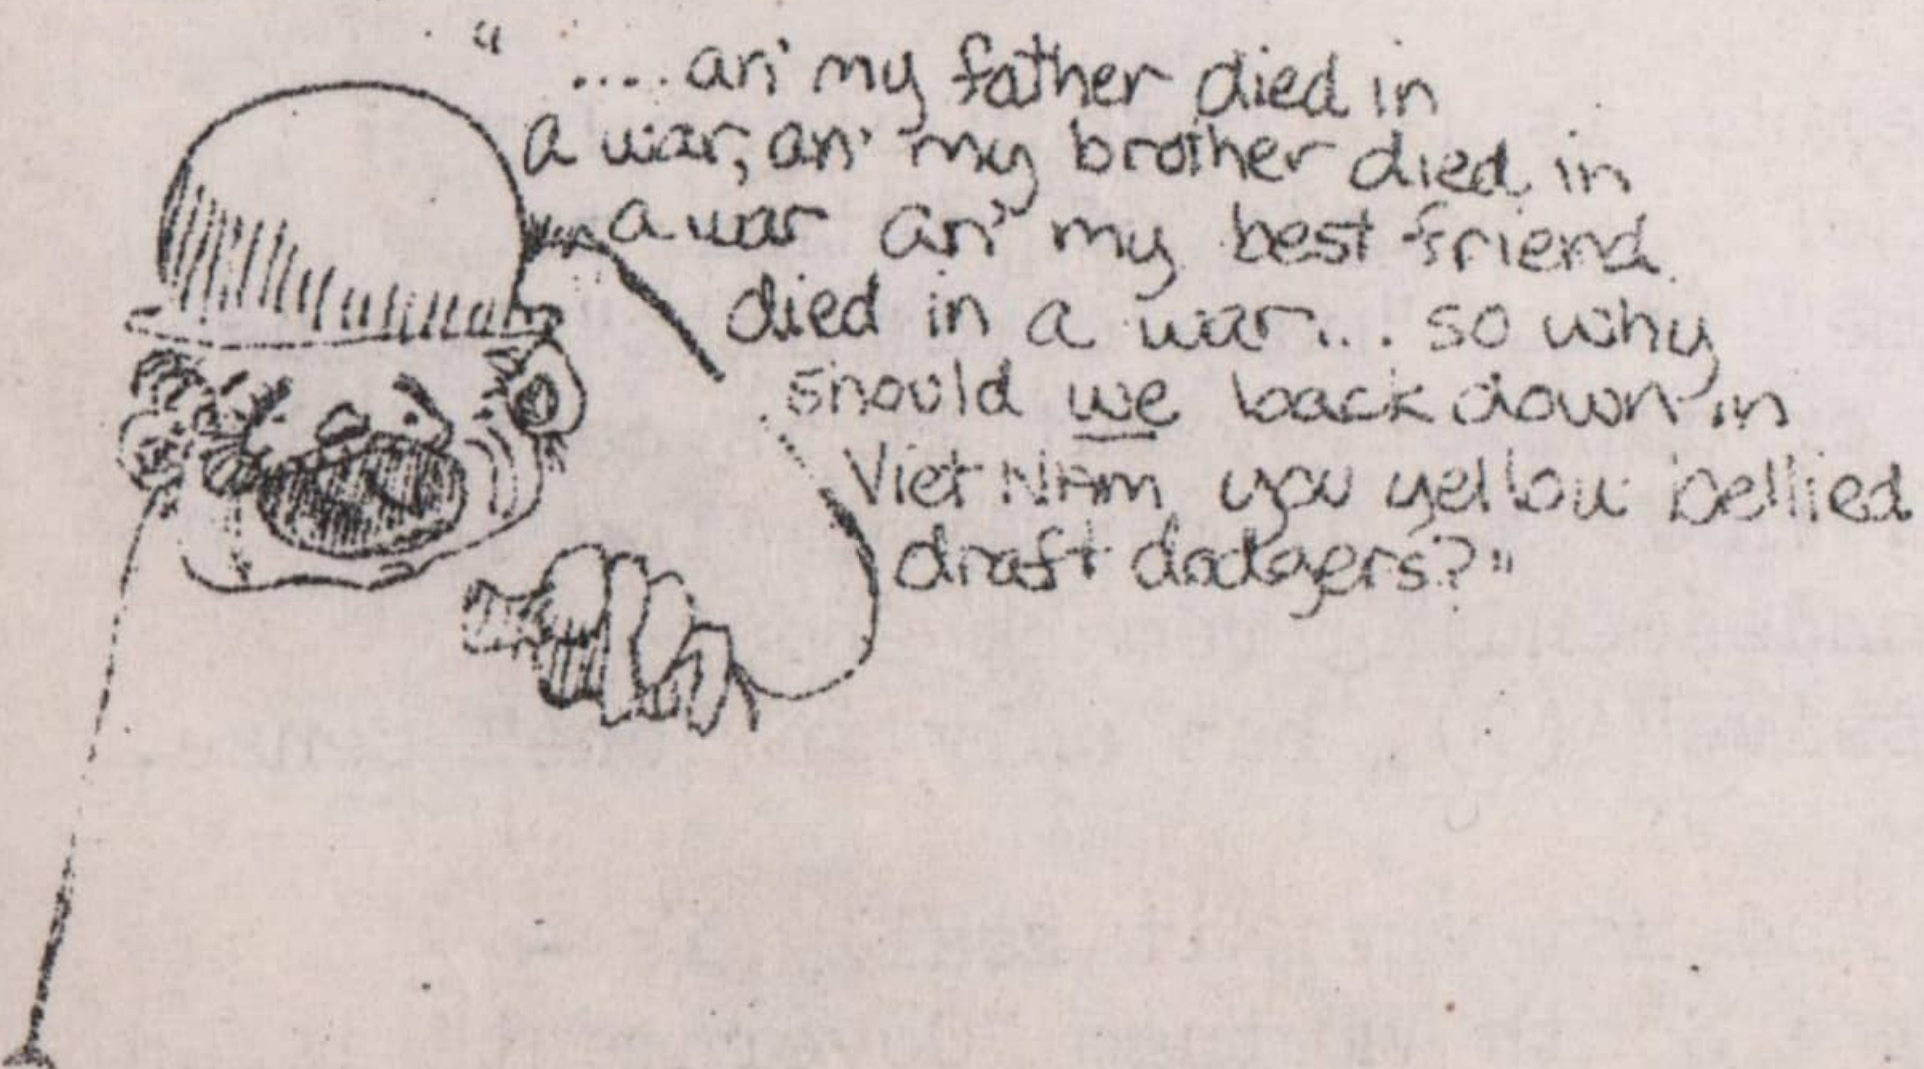 ".... an' my father died in
a war, an' my brother died in
a war an' my best friend
died in a war... so why
should we back down in
Viet NAm you yellow bellied
draft dodgers?"